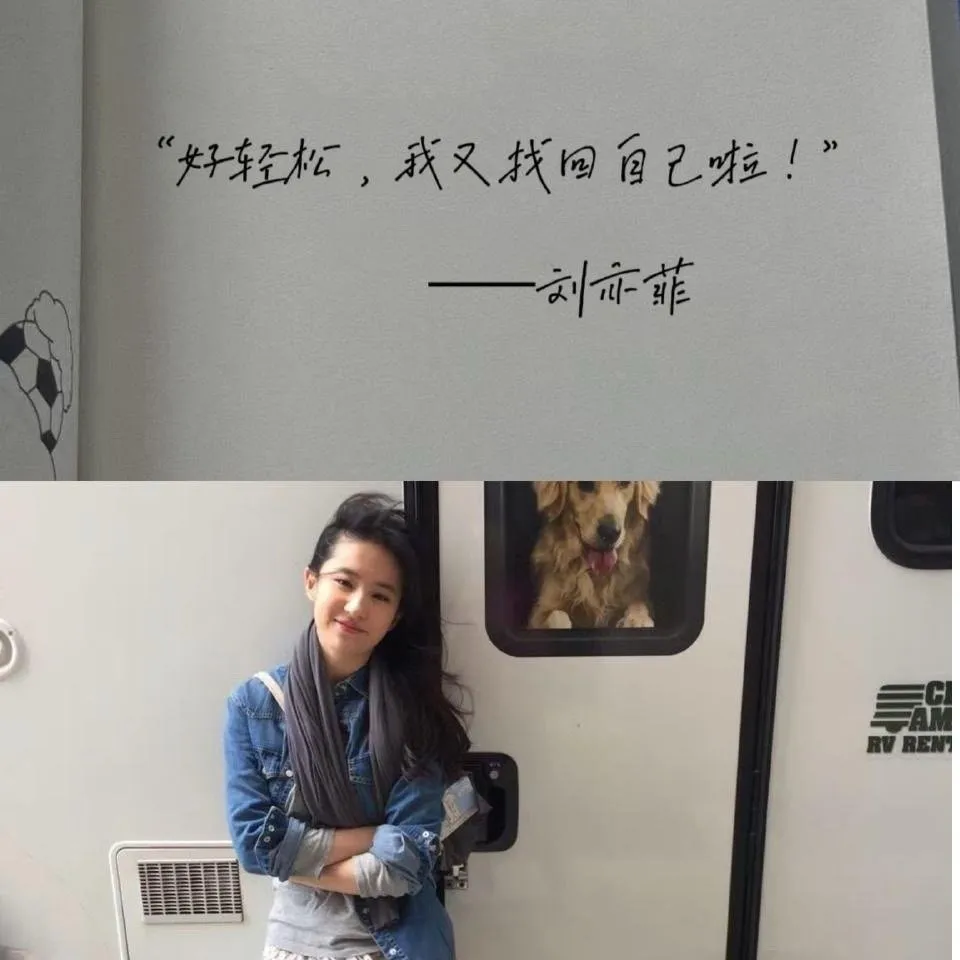 “好轻松，我又找回自己啦！”
——刘亦菲
RV RENT